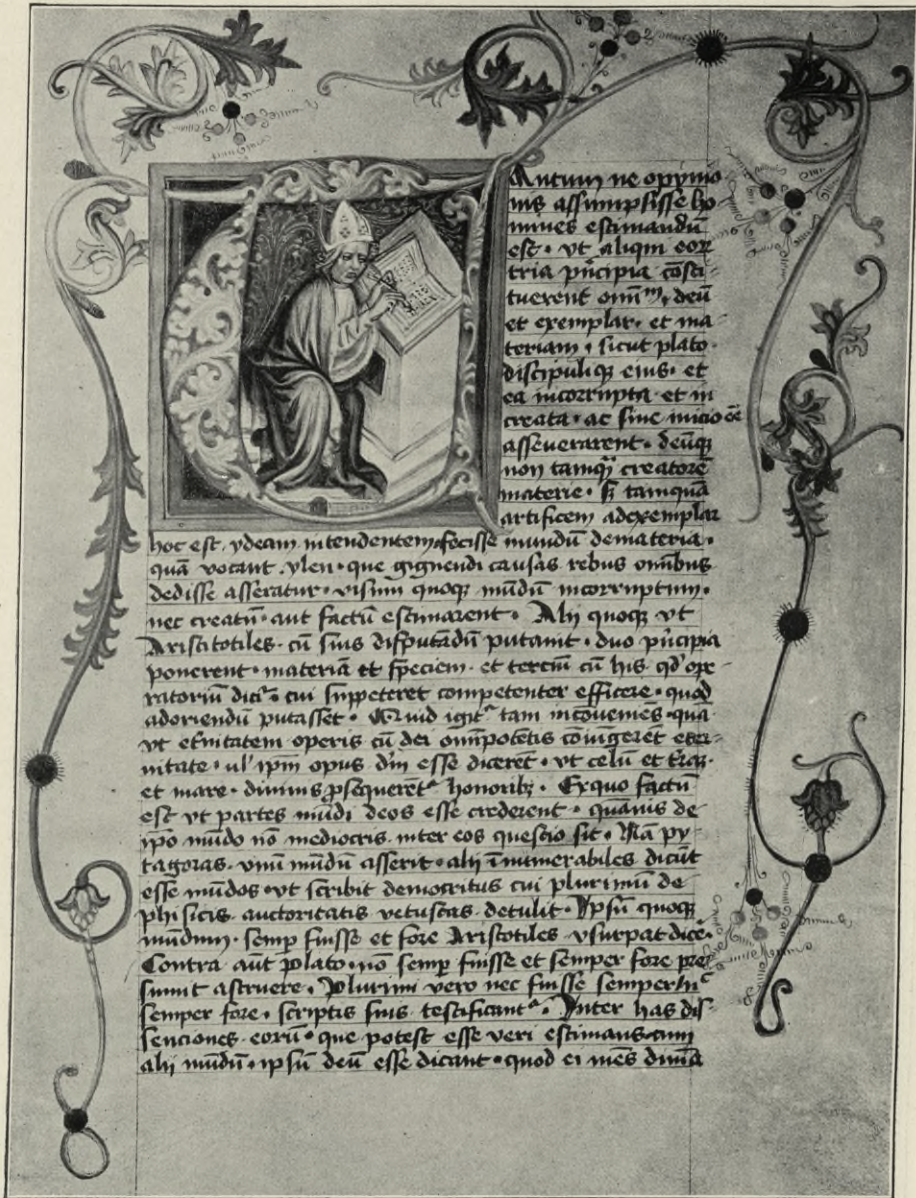 TAntum ne opynio
nis assumpsisse ho
mines estimandū
est · vt aliqui eoꝝ
tria pͥncipia cōsti-
tuerent omīᵐ, deū
et exemplar · et ma
teriam · sicut plato ·
discipuliqꝫ eius · et
ea incorrupta · et in
creata · ac sine inicio eē
asseuerarent · deūqꝫ
non tamqͣꝫ creatorē
materie · sꝫ tamquā
artificem adexemplar
hoc est · ydeam intendentem · fecisse mundū demateria ·
quā vocant · ylen · que gignendi causas rebus om̄ībus
dedisse asseratur · ipsum quoqꝫ mūdū incorruptum ·
nec creatū · aut factū estimarent · Alij quoqꝫ vt
Aristitotiles · cū suis disputādū putauit · duo pͥncipia
ponerent · materiā et spēciem · et terciū cū his · qd' ope-
ratoriū dicitͬ · cui suppeteret competenter efficere · quod
adoriendū putasset · Quid igitͬ tam incōueniēs · quā
vt et̓nitatem operis cū dei om̄īpotētis cōiūgeret eter-
nitate · ul' ipm̄ opus dm̄ esse diceret · vt celū et t̓rā ·
et mare · diuinis ꝓsequeretͬ honoribꝫ · Ex quo factū
est vt partes mūdi deos esse crederent · quāuis de
ip̄o mūdo nō mediocris · inter eos questio sit · Nā py-
tagoras · vnū mūdū asserit · alij īnumerabiles dicūt
esse mūdos · vt scribit democritus cui plurimū de
phisicis · auctoritatis vetustas · detulit · Ipsū quoqꝫ
mūdum · semp̱ fuisse et fore Aristotiles vsurpat dicē·
Contra aūt plato · nō semp̱ fuisse et semper fore pre-
sumit astruere · Plurimi vero nec fuisse semper nͨ
semper fore · scriptis suis testificantͬ · Inter has dis-
senciones · eorū · que potest esse veri estimatio · cum
alij mūdū · ipsū deū esse dicant · quod ei mēs diuīa